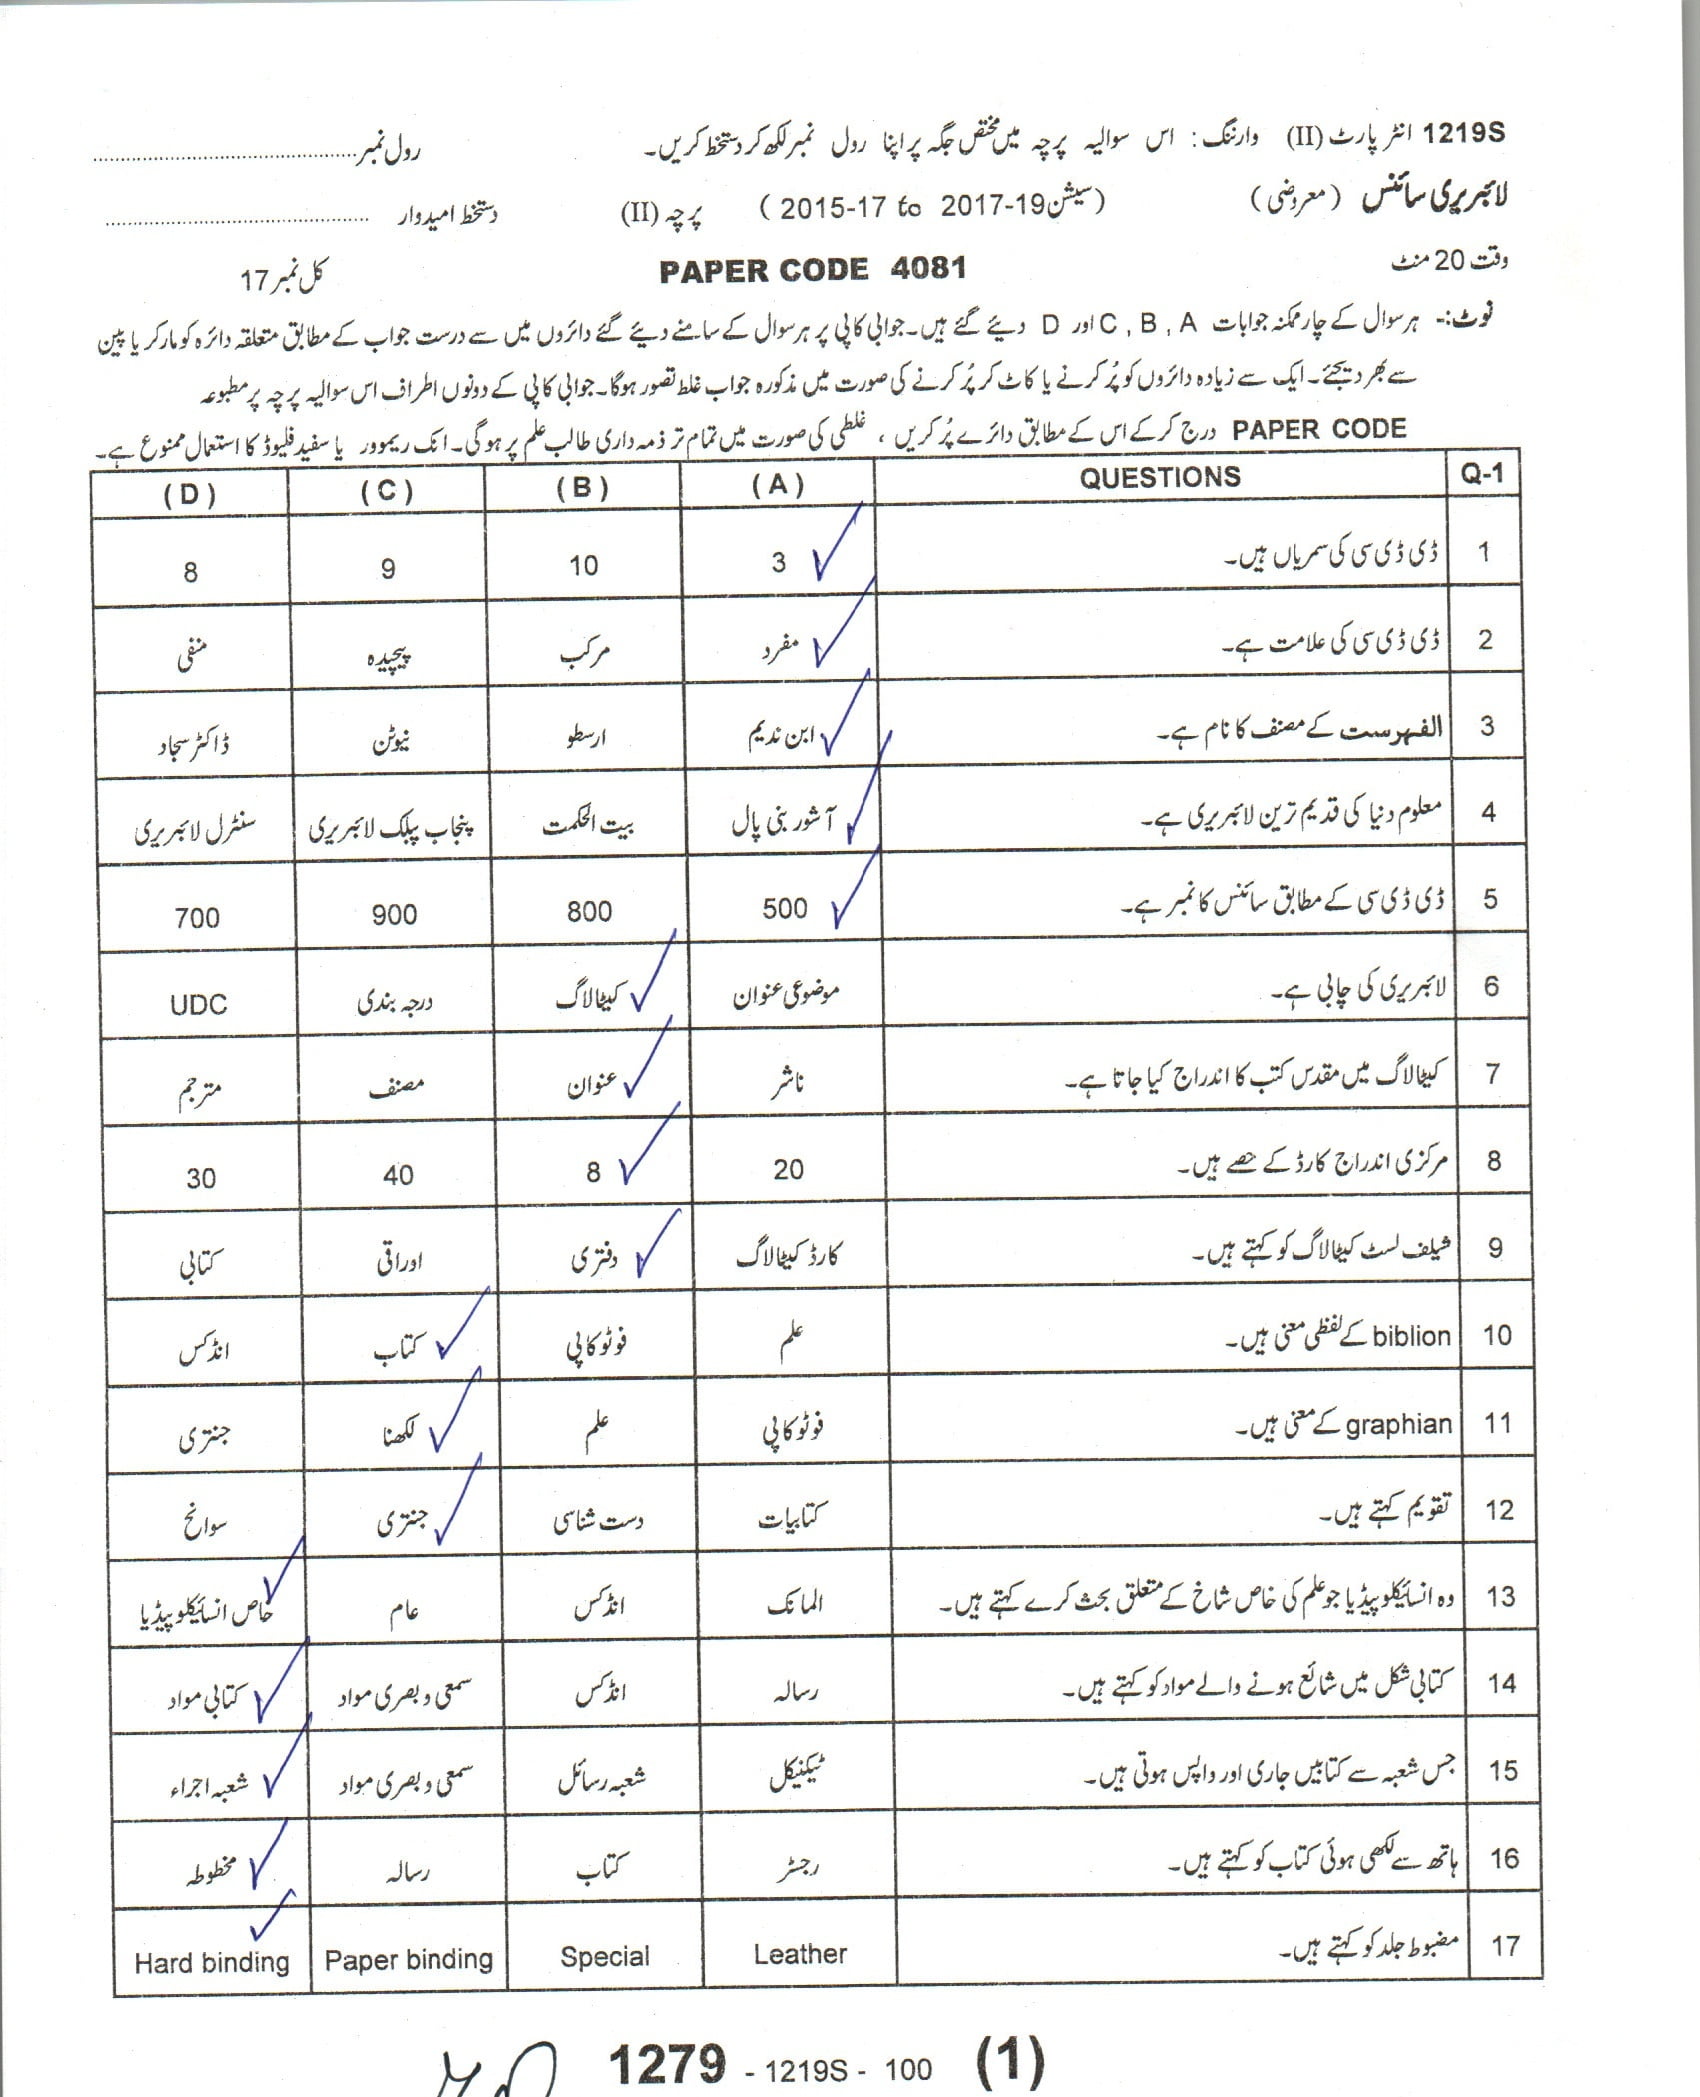 1219S انٹر پارٹ (II) وارننگ: اس سوالیہ پرچہ میں مختص جگہ پر اپنا رول نمبر لکھ کر دستخط کریں۔ رول نمبر
لائبریری سائنس (معروضی) (سیشن 2015-17 to 2017-19) پرچہ (II) دستخط امیدوار
وقت 20 منٹ PAPER CODE 4081 کل نمبر 17
نوٹ:- ہر سوال کے چار ممکنہ جوابات A , B , C اور D دیئے گئے ہیں۔ جوابی کاپی پر ہر سوال کے سامنے دیئے گئے دائروں میں سے درست جواب کے مطابق متعلقہ دائرہ کو مارکر یا پین
سے بھر دیجئے۔ ایک سے زیادہ دائروں کو پُر کرنے یا کاٹ کر پُر کرنے کی صورت میں مذکورہ جواب غلط تصور ہوگا۔ جوابی کاپی کے دونوں اطراف اس سوالیہ پرچہ پر مطبوعہ
PAPER CODE درج کر کے اس کے مطابق دائرے پُر کریں ، غلطی کی صورت میں تمام تر ذمہ داری طالب علم پر ہوگی۔ انک ریموور یا سفید فلیوڈ کا استعمال ممنوع ہے۔
Q-1 QUESTIONS (A) (B) (C) (D)
1 ڈی ڈی سی کی سمریاں ہیں۔ 3 10 9 8
2 ڈی ڈی سی کی علامت ہے۔ مفرد مرکب پیچیدہ منفی
3 الفہرست کے مصنف کا نام ہے۔ ابن ندیم ارسطو نیوٹن ڈاکٹر سجاد
4 معلوم دنیا کی قدیم ترین لائبریری ہے۔ آشور بنی پال بیت الحکمت پنجاب پبلک لائبریری سنٹرل لائبریری
5 ڈی ڈی سی کے مطابق سائنس کا نمبر ہے۔ 500 800 900 700
6 لائبریری کی چابی ہے۔ موضوعی عنوان کیٹالاگ درجہ بندی UDC
7 کیٹالاگ میں مقدس کتب کا اندراج کیا جاتا ہے۔ ناشر عنوان مصنف مترجم
8 مرکزی اندراج کارڈ کے حصے ہیں۔ 20 8 40 30
9 شیلف لسٹ کیٹالاگ کو کہتے ہیں۔ کارڈ کیٹالاگ دفتری اوراقی کتابی
10 biblion کے لفظی معنی ہیں۔ علم فوٹو کاپی کتاب انڈکس
11 graphian کے معنی ہیں۔ فوٹو کاپی علم لکھنا جنتری
12 تقویم کہتے ہیں۔ کتابیات دست شناسی جنتری سوانح
13 وہ انسائیکلوپیڈیا جو علم کی خاص شاخ کے متعلق بحث کرے کہتے ہیں۔ المانک انڈکس عام خاص انسائیکلوپیڈیا
14 کتابی شکل میں شائع ہونے والے مواد کو کہتے ہیں۔ رسالہ انڈکس سمعی و بصری مواد کتابی مواد
15 جس شعبہ سے کتابیں جاری اور واپس ہوتی ہیں۔ ٹیکنیکل شعبہ رسائل سمعی و بصری مواد شعبہ اجراء
16 ہاتھ سے لکھی ہوئی کتاب کو کہتے ہیں۔ رجسٹر کتاب رسالہ مخطوطہ
17 مضبوط جلد کو کہتے ہیں۔ Leather Special Paper binding Hard binding
1279 - 1219S - 100 (1)